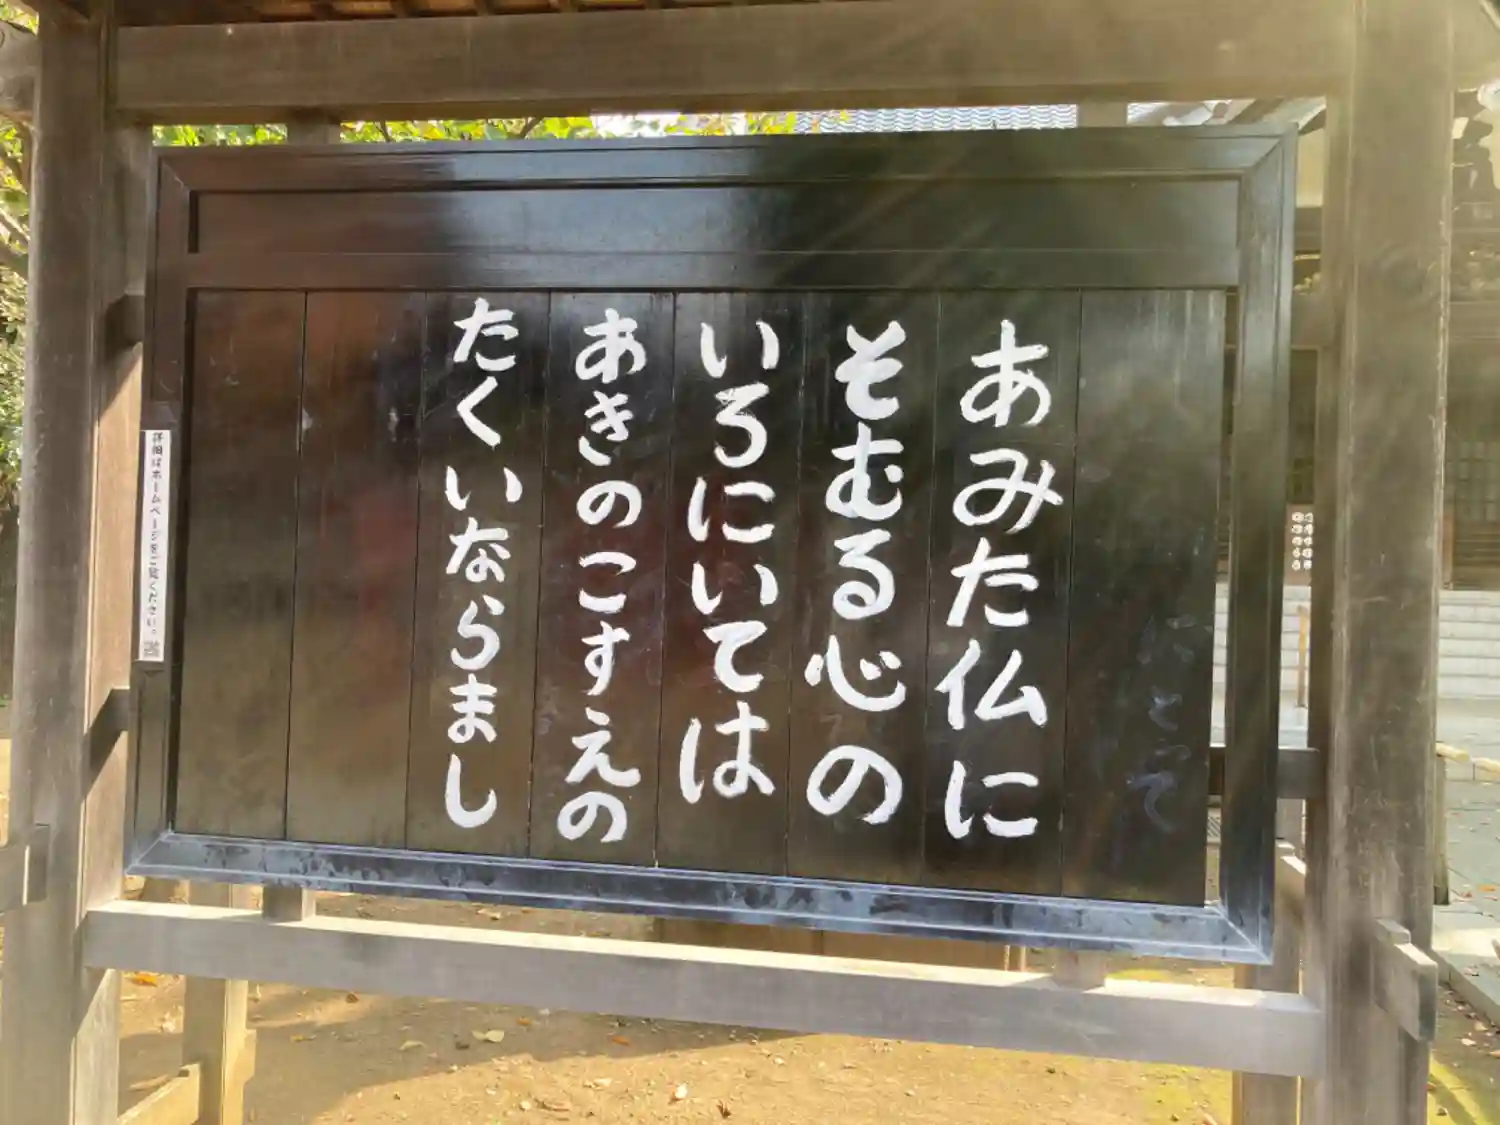 あみた仏に
そむる心の
いろにいては
あきのこすえの
たくいならまし
詳細はホームページをご覧ください。